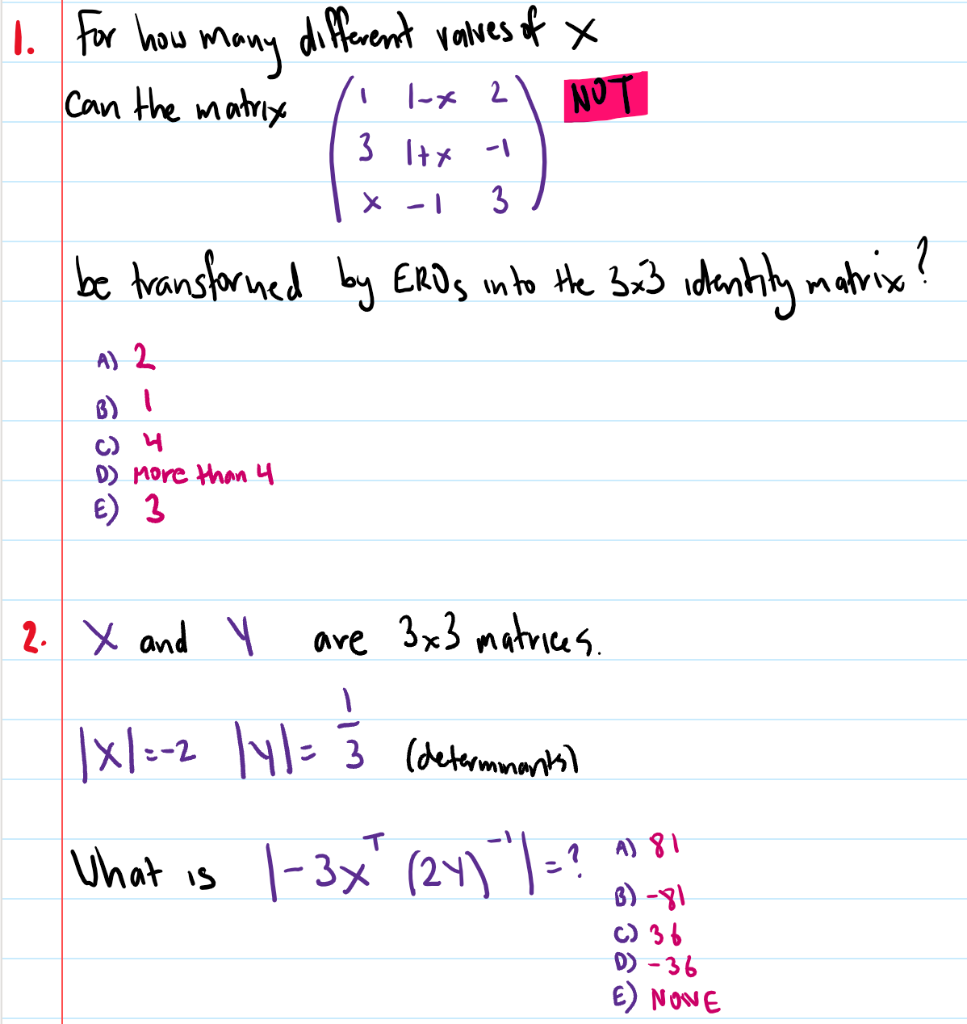 1. For how many different values of x
can the matrix ( 1 1-x 2 NOT
3 1+x -1
x -1 3 )
be transformed by EROs into the 3x3 identity matrix?
A) 2
B) 1
C) 4
D) More than 4
E) 3
2. X and Y are 3x3 matrices.
|X|=-2 |Y|= 1/3 (determinants)
What is |-3X^T (2Y)^-1|=?
A) 81
B) -81
C) 36
D) -36
E) NONE